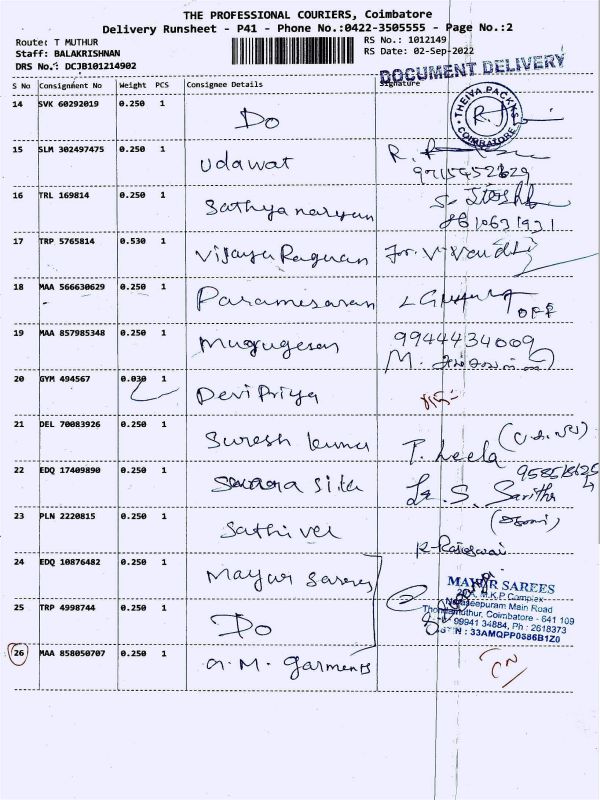 THE PROFESSIONAL COURIERS, Coimbatore
Delivery Runsheet - P41 - Phone No.:0422-3505555 - Page No.:2
Route: T MUTHUR
Staff: BALAKRISHNAN
DRS No.: DCJB101214902
RS No.: 1012149
RS Date: 02-Sep-2022
DOCUMENT DELIVERY
S No Consignment No Weight PCS Consignee Details Signature
14 SVK 60292019 0.250 1 Do
THEIVA PACKKS COIMBATORE
15 SLM 302497475 0.250 1 Udawat
16 TRL 169814 0.250 1 Sathyanarayan
8610631931
17 TRP 5765814 0.530 1 Vijaya Ragunan
18 MAA 566630629 0.250 1 Paramesaran
OFF
19 MAA 857985348 0.250 1 Mugugesan 9944434009
20 GYM 494567 0.030 1 Devi Priya
21 DEL 70083926 0.250 1 Suresh kumar T. Leela
22 EDQ 17409890 0.250 1 sita S. Saritha
23 PLN 2220815 0.250 1 Sathivel
24 EDQ 10876482 0.250 1 Mayur Sarees
MAYUR SAREES
M.K.P Complex
Naraseepuram Main Road
Thondamuthur, Coimbatore - 641 109
99941 34884, Ph : 2618373
GSTIN : 33AMQPP0886B1Z0
25 TRP 4998744 0.250 1 Do
26 MAA 858050707 0.250 1 a.M. garments